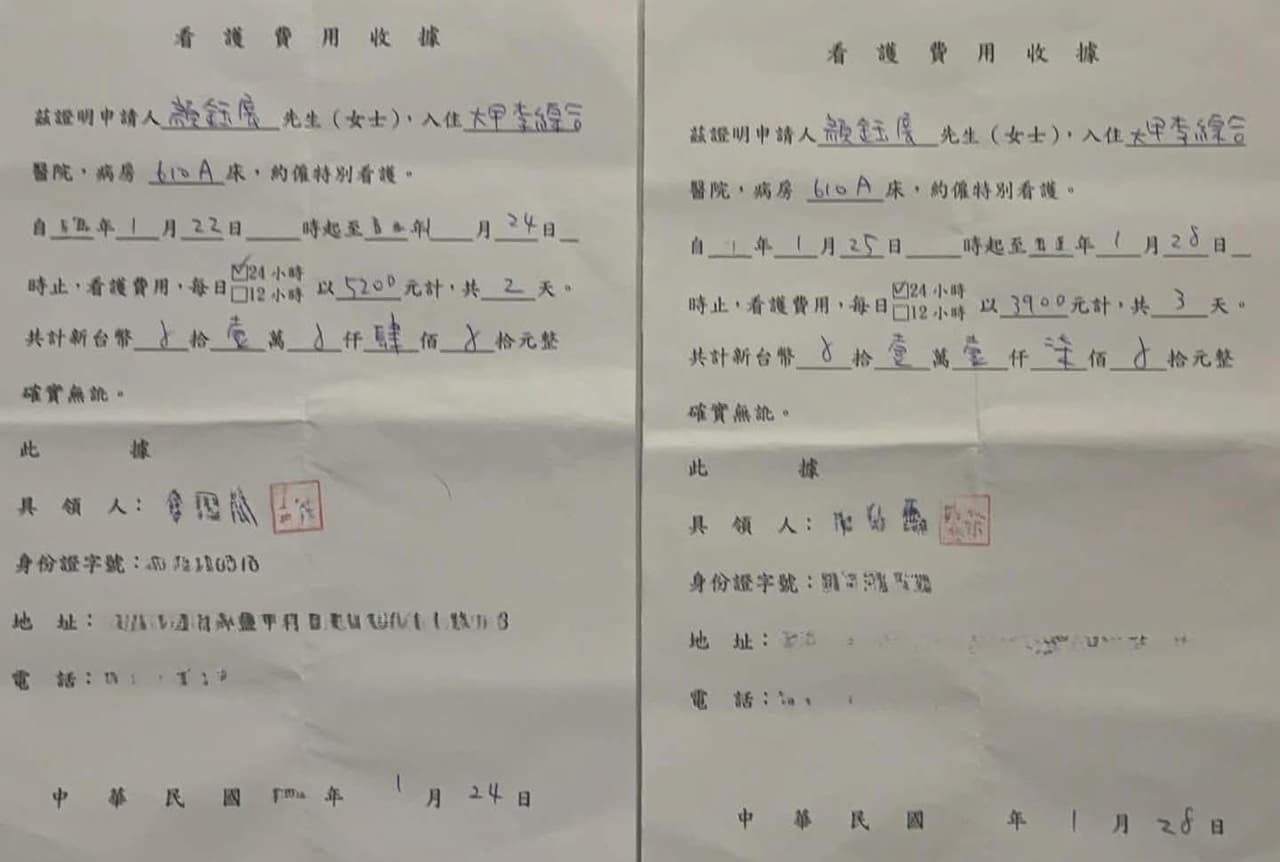 看護費用收據
茲證明申請人顏鈺展先生（女士），入住大甲李綜合
醫院，病房 610A 床，約僱特別看護。
自 年 1 月 22 日 時起至 年 1 月 24 日
時止，看護費用，每日 ☑24 小時 □12 小時 以 5200 元計，共 2 天。
共計新台幣 0 拾 壹 萬 0 仟 肆 佰 0 拾元整
確實無訛。
此 據
具 領 人：
身份證字號：
地 址：
電 話：
中 華 民 國 年 1 月 24 日
看護費用收據
茲證明申請人顏鈺展先生（女士），入住大甲李綜合
醫院，病房 610A 床，約僱特別看護。
自 年 1 月 25 日 時起至 年 1 月 28 日
時止，看護費用，每日 ☑24 小時 □12 小時 以 3900 元計，共 3 天。
共計新台幣 0 拾 壹 萬 壹 仟 柒 佰 0 拾元整
確實無訛。
此 據
具 領 人：
身份證字號：
地 址：
電 話：
中 華 民 國 年 1 月 28 日